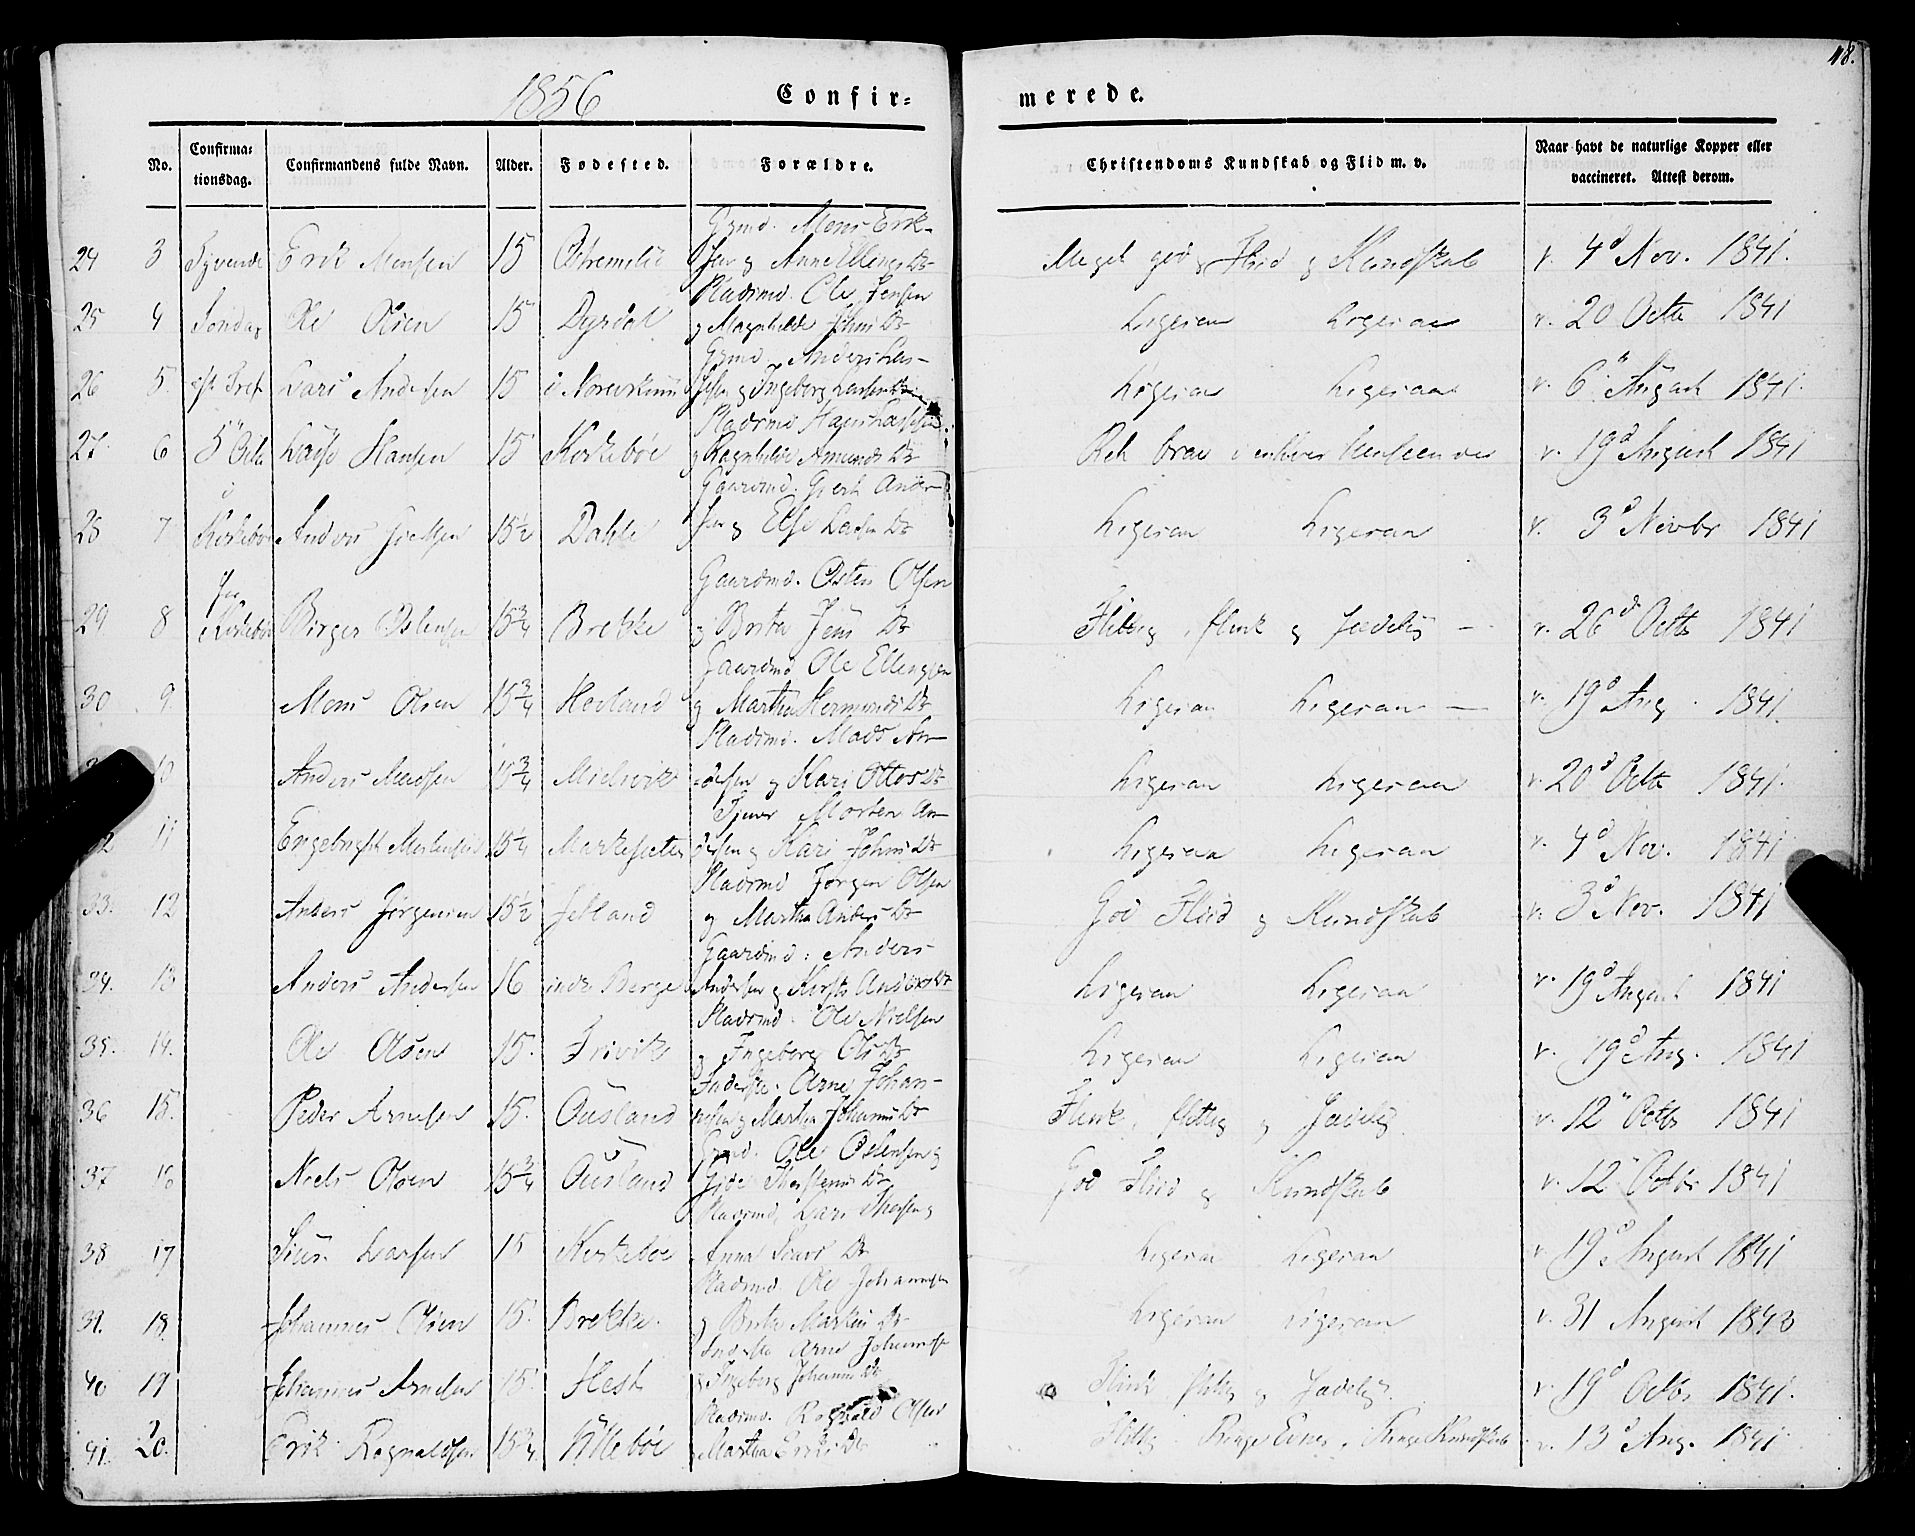 18.
1856 Confir= merede.
No. Confirma= tionsdag. Confirmandens fulde Navn. Alder. Fødested. Forældre. Christendoms Kundskab og Flid m. v. Naar havt de naturlige Kopper eller vaccineret. Attest derom.
24 3 Syvende Erik Monsen 15 Gmd. Mons Erik- sen og Anne Ellings Dr Meget god Flid og Kundskab v. 4d Nov. 1841.
25 4 Søndag Ole Olsen 15 Dyrdal Pladsmd. Ole Jensen og Magnhilde Johns Dr Ligesaa Ligesaa v. 20 Octb 1841
26 5. eft Tref. Lars Andersen 15 Gmd. Anders Lar- sen og Ingeborg Ligesaa Ligesaa v. 6" August 1841.
27. 6 5" Octb Lasse Hansen 15 Kirkebøe Pladsmd Hans og Ragnhilde Amunds Dr Ret brav i enhver Henseende v. 19d August 1841
28 7 i Kirkebøe Anders 15½ Dahle Gaardmd. Anders- sen og Else Lasses Dr Ligesaa Ligesaa v. 3d Novbr 1841
29 8 Kirkebøe Birger Østensen 15¾ Brekke Gaardmd. Østen Olsen og Brita Jens Dr Flittig, flink og sædelig — v. 26d Octb 1841
30 9. Mons Olsen 15¾ Hovland Gaardmd Ole Ellingsen og Martha Hermunds Dr Ligesaa Ligesaa — v. 19d Aug. 1841.
10 Anders Madsen 15¾ Mielsvik Pladsmd. Mads An- dersen og Kari Ottos Dr Ligesaa Ligesaa v. 20d Octb 1841.
32 11 Engebrigt Mortensen 15¼ Tjener Morten An- dersen og Kari Johns Dr Ligesaa Ligesaa v. 4d Nov. 1841
33. 12 Anders Jørgensen 15½ Pladsmd Jørgen Olsen og Martha Anders Dr God Flid og Kundskab v. 3d Nov. 1841
34. 13 Anders Andersen 16 indre Berge Gaardmd. Anders Andersen og Kirsti Anders Dr Ligesaa Ligesaa v. 19d August 1841
35. 14. Ole Olsen 15. Trivik Pladsmd. Ole Nielsen og Ingeborg Ols Dr Ligesaa Ligesaa v. 19d Aug. 1841
36 15. Peder Arnesen 15. Ousland Inderste. Arne Johan- nesen og Martha Johannes Dr Flink, flittig og sædelig. v. 12" Octb 1841
37 16 Niels Olsen 15¾ Ousland Gmd. Ole Østensen og God Flid og Kundskab v. 12" Octbr 1841
38 17 Siur Larsen 15 Kirkebøe Pladsmd. Lars og Anna Siurs Dr Ligesaa Ligesaa v. 19d August 1841
39. 18. Johannes Olsen 15. Brekke. Pladsmd. Ole Johannesen og Brita Martins Dr Ligesaa Ligesaa v. 31 August 1843
40 19 Johannes Arnesen 15. Hest Inderste Arne Johannesen og Ingeborg Johannes Dr Flink flittig og sædelig. v. 19d Octbr 1841.
41. 20. Erik Ragnvaldsen 15¾ Pladsmd. Ragnvald Olsen og Martha Eriks Dr Flittig Ringe Evner, Ringe Kundskab. v. 13d Aug. 1841